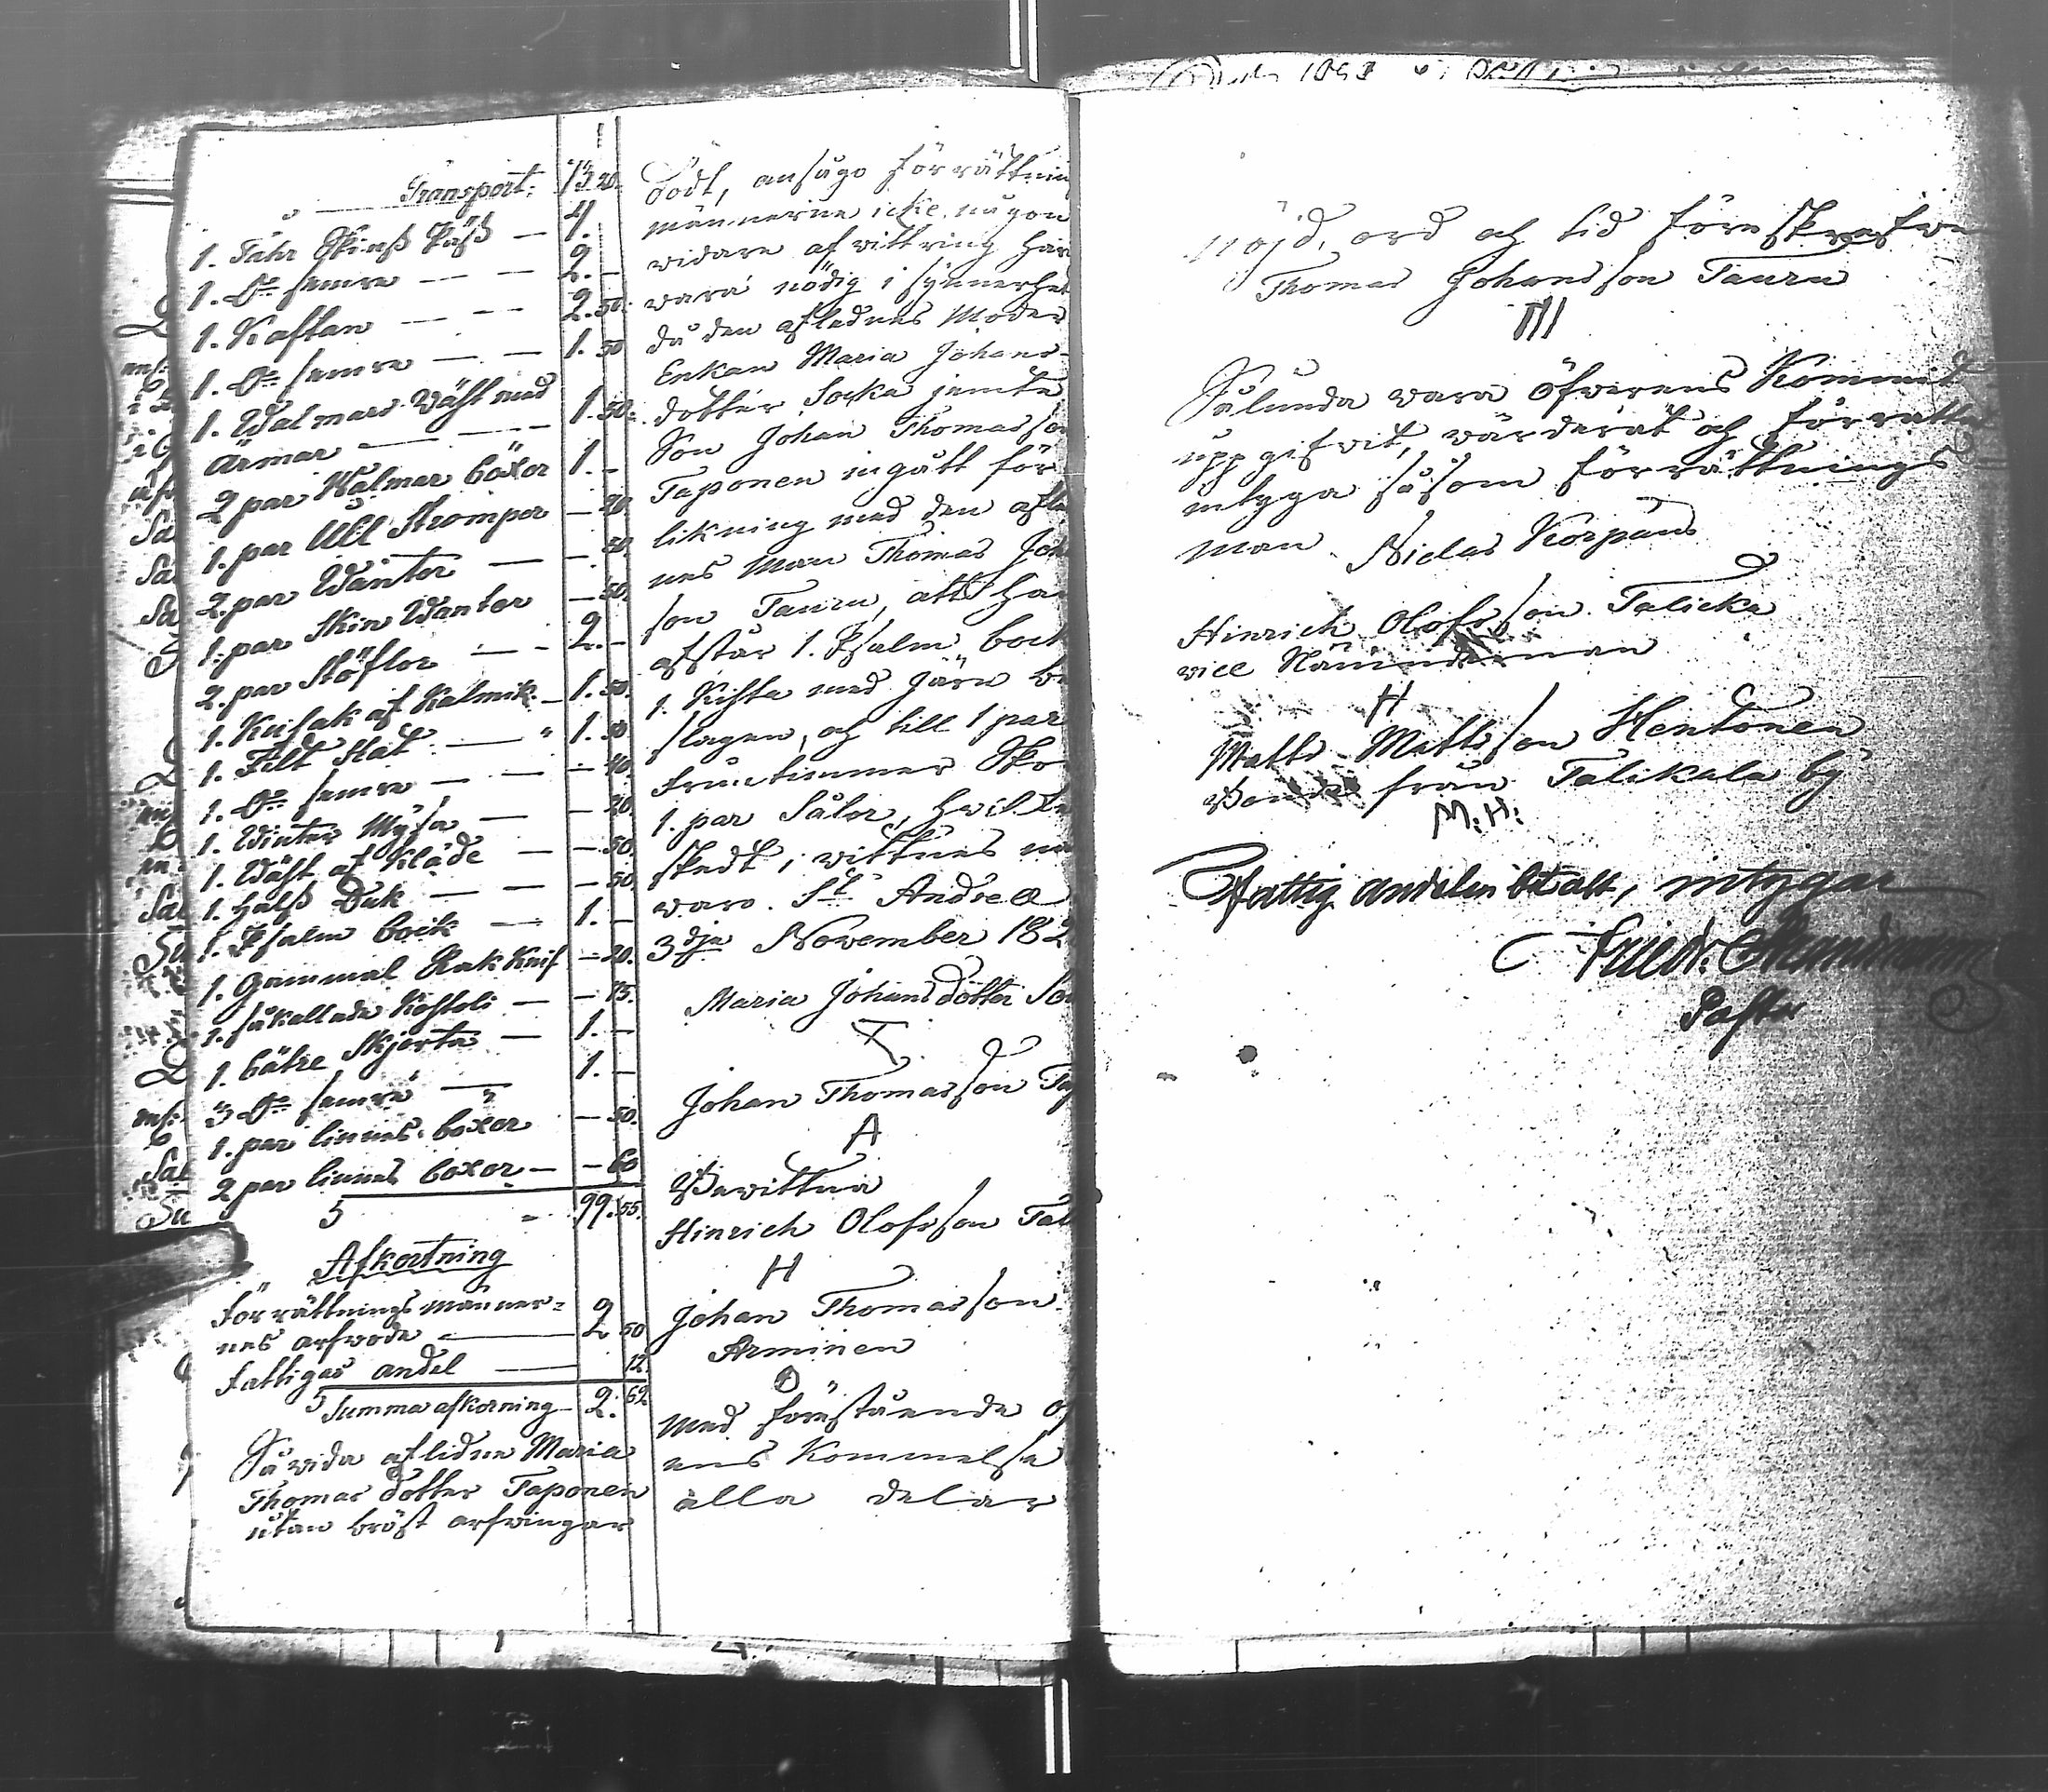 Transport: 73 20.
1. Fåhr Skinß Päß — 4.
1. D:o semre — — 2. —
1. Kaftan — — 2. 50.
1. D:o semre — — 1. 50
1. Walmars Wäst med
Ärmar — — 1. 50.
2 par Walmar böxor 1. —
1. par Ull Strompor — 20
2. par Wantor — — 50.
1. par Skin Wantor — 50.
2. par Stöflor — — 2. —
1. af Kalmik — 1. 50.
1. Filt Hat — " 1. 50
1. D:o semre — — — 40.
1. Winter Mysa — — 20.
1. Wäst af Kläde — — 50.
1. Halß Duk — — — 50.
1. Psalm bock — 1. —
1. gammal Rak Knif — 20.
1. såkallade Kostoli — — 75.
1. bätre Skjorta — 1. —
3 D:o semre — 1. —
1. par linnes boxor — 50.
2 par linnes boxor — — 60
S 99. 55.
Afkortning
Förrättnings männer=
nes arfwode — 2 50
Fattigas andel — 12.
Summa afkorning 2. 62
Så vida aflidne Maria
Thomas dotter Taponen
utan bröst arfwingar
Dödt, ansågo förrättnin
männerne icke någon
vidare afvittring här
wara nödig i synnerhet
då den aflednes Moder
Enkan Maria Johans-
dotter Socka jemte
Son Johan Thomasson
Taponen ingått för
likning med den afle
nes Man Thomas Joh
son Tauru, att Ha
afstår 1. Psalm bock
1. Kista med Järn be
slagen, och till 1 par
Fruntimmer Sko
1. par Sålor, hvilke
skedt, vittnes
waro. S:t Andreæ
3dje November 182
Maria Johansdotter So
Johan Thomasson Ta
A
Bewittna
Hinrich Olofsson Tal
H
Johan Thomasson
Arminen
Med förestående
ens Kommelse
alla delar
nöjd, ord och tid föreskrefwe
Thomas Johansson Tauru
Sålunda wara öfwerens Kommit
uppgifvit, wärderat och förrätta
intyga såsom förrättnings
Man. Niclas Korpans
Hinrich Olofsson Talicka
vice Nämndeman
H
Matts Mattsson Hentonen
Bonde från Talikala by
M: H:
Fattig andelen betalt, intygar
Friedr.
Pastor